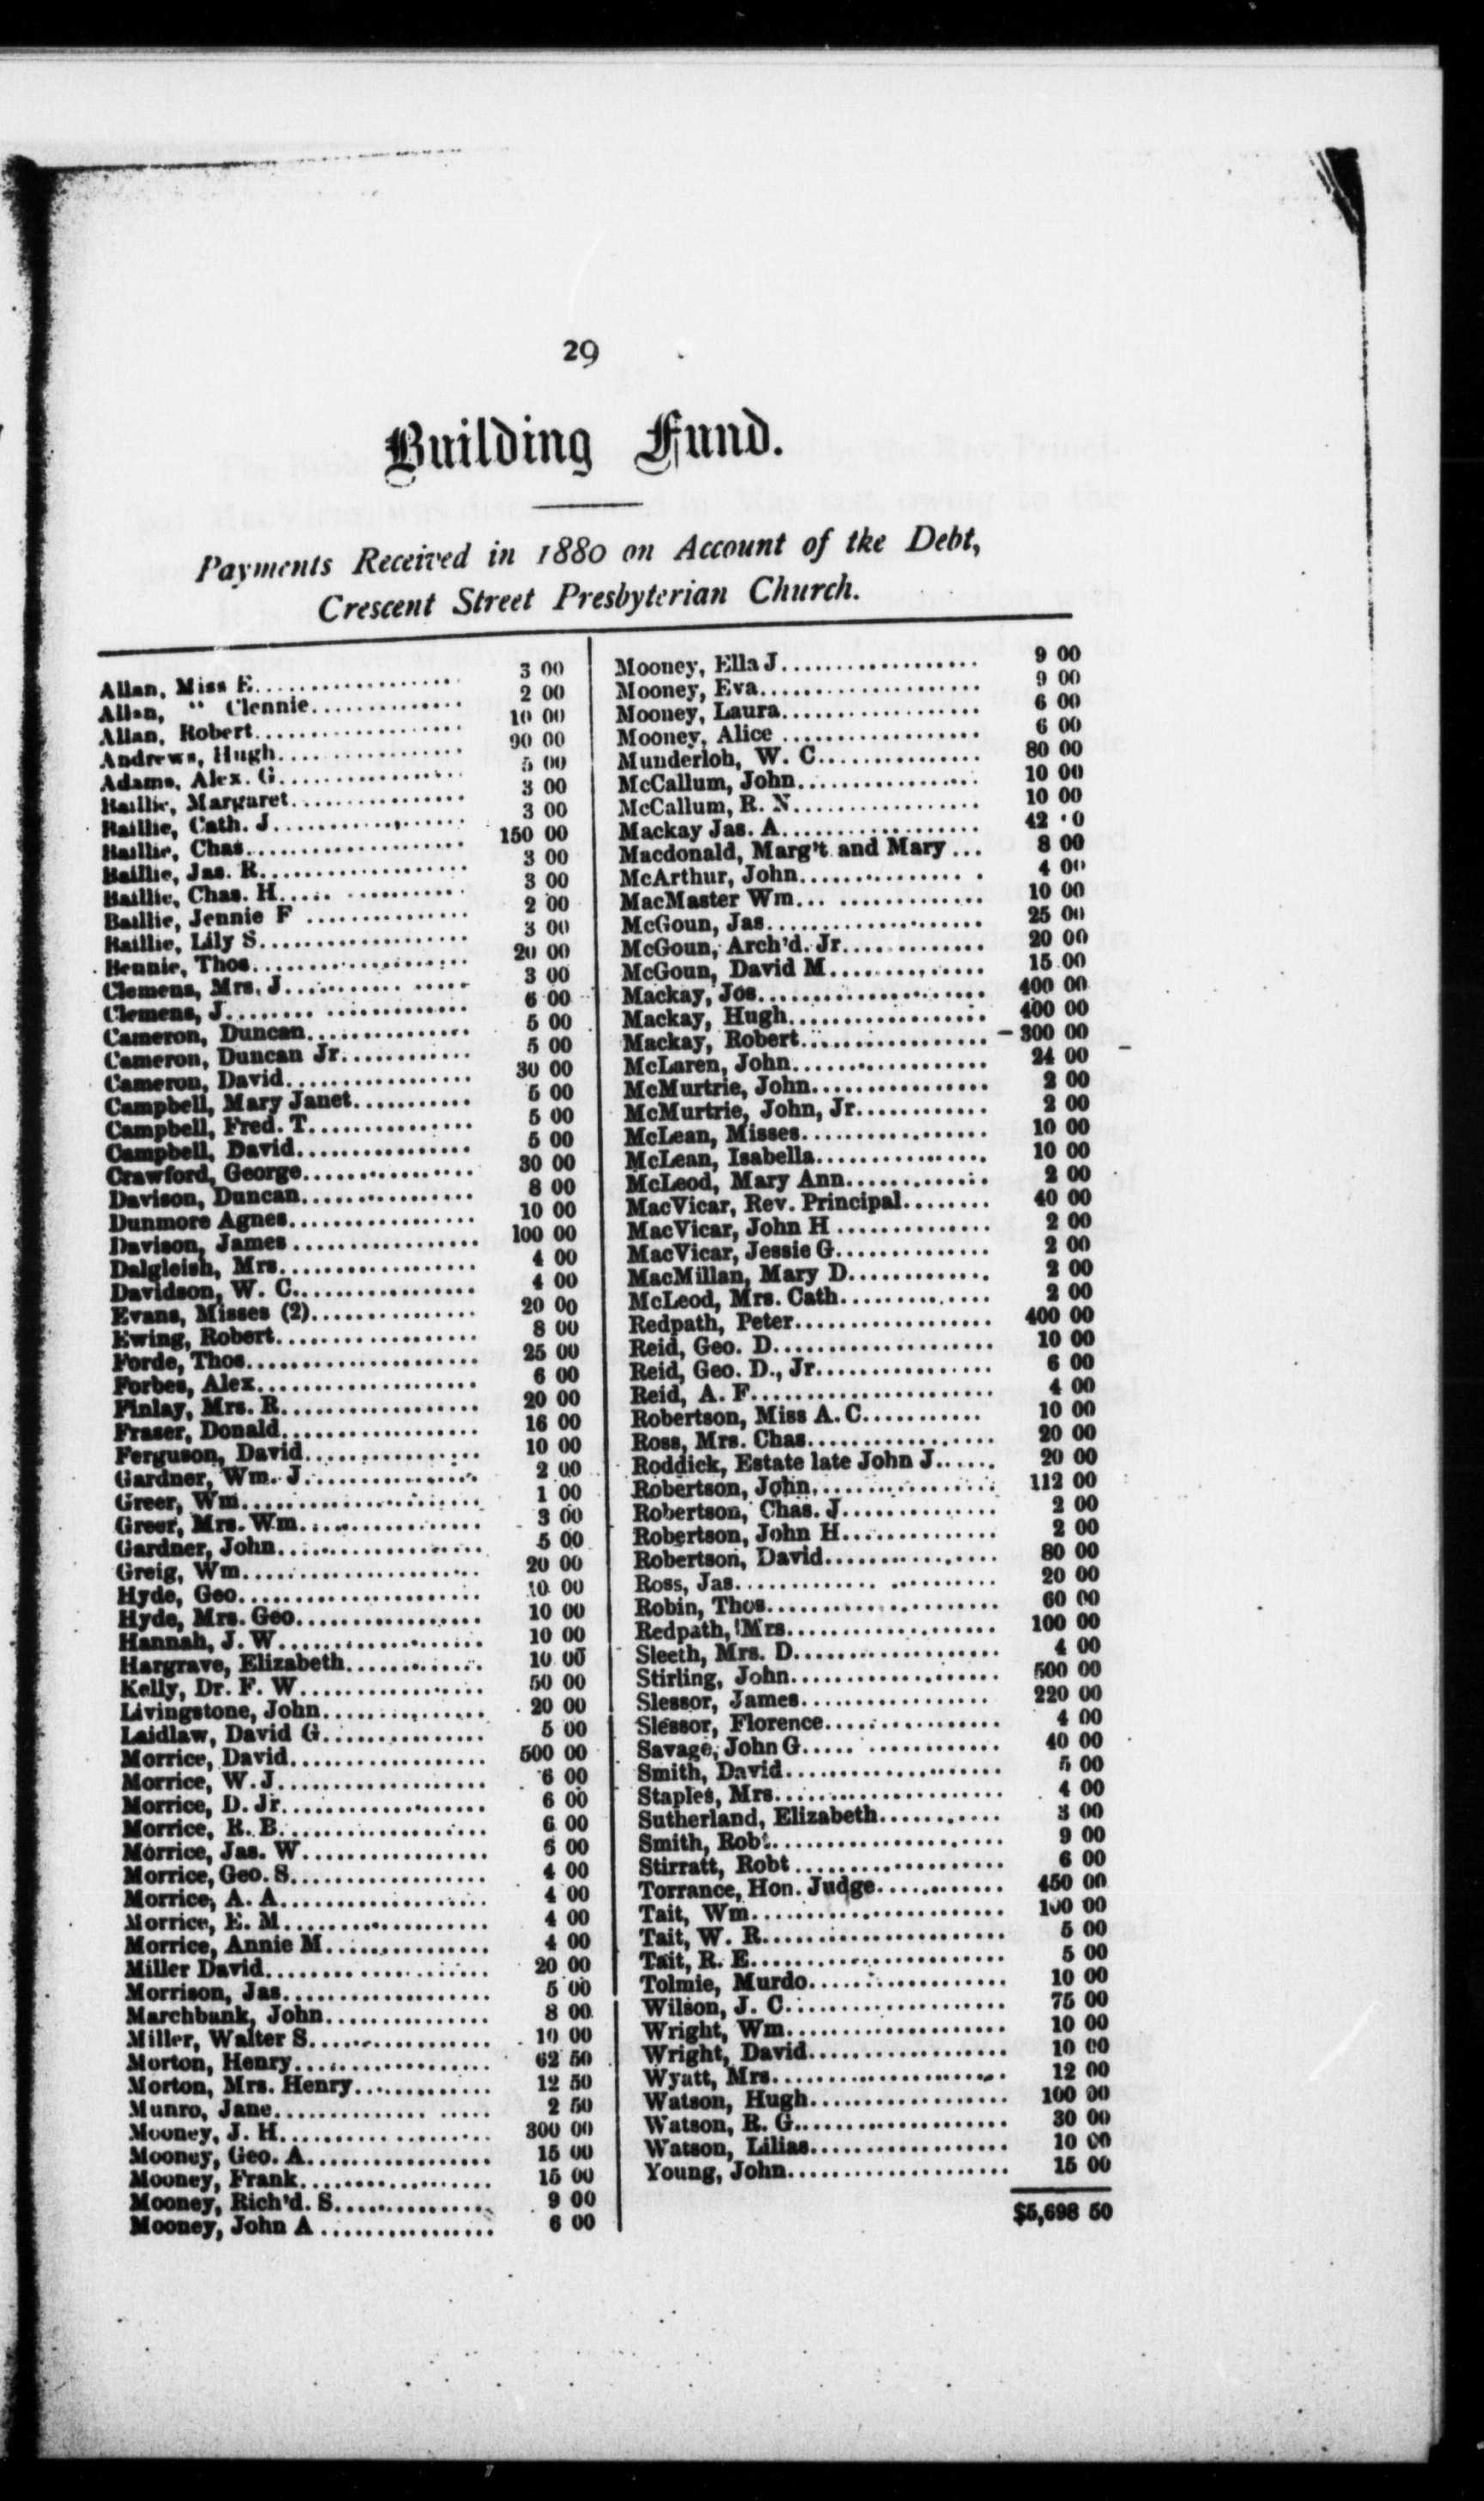 29
Building Fund.
Payments Received in 1880 on Account of the Debt,
Crescent Street Presbyterian Church.
Allan, Miss E.................... 3 00
Allan, " Clennie............... 2 00
Allan, Robert.................... 10 00
Andrews, Hugh.................. 90 00
Adams, Alex. G.................. 5 00
Baillie, Margaret................ 3 00
Baillie, Cath. J.................. 3 00
Baillie, Chas..................... 150 00
Baillie, Jas. R................... 3 00
Baillie, Chas. H..... ........... 3 00
Baillie, Jennie F ............... 2 00
Baillie, Lily S................... 3 00
Bennie, Thos.................... 20 00
Clemens, Mrs. J........... ..... 3 00
Clemens, J........ ............. 6 00
Cameron, Duncan............... 5 00
Cameron, Duncan Jr............ 5 00
Cameron, David................. 30 00
Campbell, Mary Janet........... 5 00
Campbell, Fred. T............... 5 00
Campbell, David................ 5 00
Crawford, George................ 30 00
Davison, Duncan................ 8 00
Dunmore Agnes................. 10 00
Davison, James ................. 100 00
Dalgleish, Mrs................... 4 00
Davidson, W. C................. 4 00
Evans, Misses (2)............... 20 00
Ewing, Robert................... 8 00
Forde, Thos..................... 25 00
Forbes, Alex.................... 6 00
Finlay, Mrs. R.................. 20 00
Fraser, Donald.................. 16 00
Ferguson, David................ 10 00
Gardner, Wm. J................ 2 00
Greer, Wm...................... 1 00
Greer, Mrs. Wm................. 3 00
Gardner, John................... 5 00
Greig, Wm...................... 20 00
Hyde, Geo...................... 10 00
Hyde, Mrs. Geo................. 10 00
Hannah, J. W................... 10 00
Hargrave, Elizabeth............. 10 00
Kelly, Dr. F. W................. 50 00
Livingstone, John............... 20 00
Laidlaw, David G............... 5 00
Morrice, David.................. 500 00
Morrice, W. J................... 6 00
Morrice, D. Jr................... 6 00
Morrice, R. B................... 6 00
Morrice, Jas. W................. 6 00
Morrice, Geo. S................. 4 00
Morrice, A. A................... 4 00
Morrice, E. M................... 4 00
Morrice, Annie M............... 4 00
Miller David.................... 20 00
Morrison, Jas................... 5 00
Marchbank, John............... 8 00
Miller, Walter S................ 10 00
Morton, Henry.................. 62 50
Morton, Mrs. Henry............ 12 50
Munro, Jane.............. ..... 2 50
Mooney, J. H.................... 300 00
Mooney, Geo. A................. 15 00
Mooney, Frank.................. 15 00
Mooney, Rich'd. S............... 9 00
Mooney, John A ................ 6 00
Mooney, Ella J.................. 9 00
Mooney, Eva.................... 9 00
Mooney, Laura.................. 6 00
Mooney, Alice .................. 6 00
Munderloh, W. C............... 80 00
McCallum, John................ 10 00
McCallum, R. N................ 10 00
Mackay Jas. A.................. 42 0
Macdonald, Marg't and Mary ... 8 00
McArthur, John............... . 4 00
MacMaster Wm... ............. 10 00
McGoun, Jas................... 25 00
McGoun, Arch'd. Jr............. 20 00
McGoun, David M.............. 15 00
Mackay, Jos.................... 400 00
Mackay, Hugh.................. 400 00
Mackay, Robert................. 300 00
McLaren, John.................. 24 00
McMurtrie, John................ 2 00
McMurtrie, John, Jr............ 2 00
McLean, Misses................. 10 00
McLean, Isabella................ 10 00
McLeod, Mary Ann............. 2 00
MacVicar, Rev. Principal........ 40 00
MacVicar, John H .............. 2 00
MacVicar, Jessie G.............. 2 00
MacMillan, Mary D............. 2 00
McLeod, Mrs. Cath............. 2 00
Redpath, Peter.................. 400 00
Reid, Geo. D.................... 10 00
Reid, Geo. D., Jr................ 6 00
Reid, A. F...................... 4 00
Robertson, Miss A. C........... 10 00
Ross, Mrs. Chas................. 20 00
Roddick, Estate late John J...... 20 00
Robertson, John................. 112 00
Robertson, Chas. J.............. 2 00
Robertson, John H.............. 2 00
Robertson, David............... 80 00
Ross, Jas............. .......... 20 00
Robin, Thos..................... 60 00
Redpath, Mrs................... 100 00
Sleeth, Mrs. D................... 4 00
Stirling, John................... 500 00
Slessor, James................. 220 00
Slessor, Florence................ 4 00
Savage, John G..... ............ 40 00
Smith, David.................... 5 00
Staples, Mrs..................... 4 00
Sutherland, Elizabeth........... 3 00
Smith, Robt..................... 9 00
Stirratt, Robt ................... 6 00
Torrance, Hon. Judge............ 450 00
Tait, Wm....................... 100 00
Tait, W. R...................... 5 00
Tait, R. E....................... 5 00
Tolmie, Murdo.................. 10 00
Wilson, J. C.................... 75 00
Wright, Wm.................... 10 00
Wright, David.................. 10 00
Wyatt, Mrs..................... 12 00
Watson, Hugh.................. 100 00
Watson, R. G................... 30 00
Watson, Lilias.................. 10 00
Young, John.................... 15 00
$5,698 50